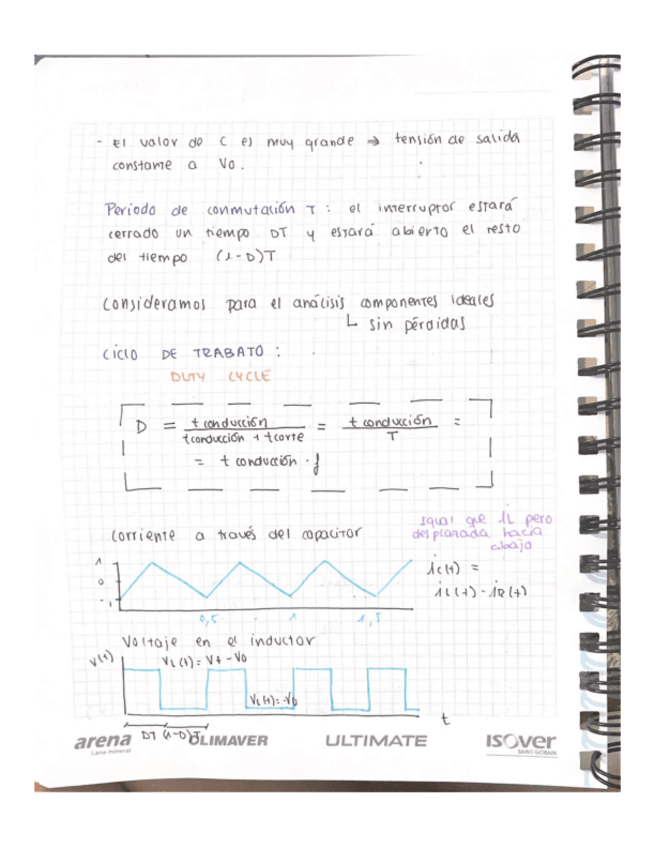 - El valor de C es muy grande → tensión de salida
constante a Vo.
Periodo de conmutación T : el interruptor estará
cerrado un tiempo DT y estará abierto el resto
del tiempo (1-D)T
Consideramos para el análisis componentes ideales
↳ sin pérdidas
CICLO DE TRABAJO :
DUTY CYCLE
D = t conducción / tconducción + tcorte = t conducción / T =
= t conducción · f
Corriente a través del capacitor
Igual que iL pero
desplazada hacia
abajo
1
0
-1
0,5 1 1,5
ic(t) =
iL(t) - iR(t)
Voltaje en el inductor
V(t)
VL(t) = Vt - Vo
VL(t) = -Vo
t
DT (1-D)T
arena
Lana mineral
CLIMAVER
ULTIMATE
ISOVER
SAINT-GOBAIN